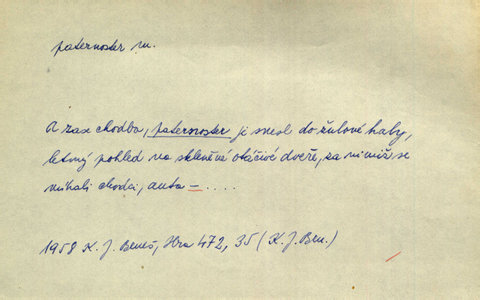 paternoster m.
A zase chodba, paternoster ji snesl do žulové haly,
letmý pohled na skleněné otáčivé dveře, za nimiž se
míhali chodci, auta – ....
1958 K. J. Beneš, Hra 472, 35 (K. J. Ben.)